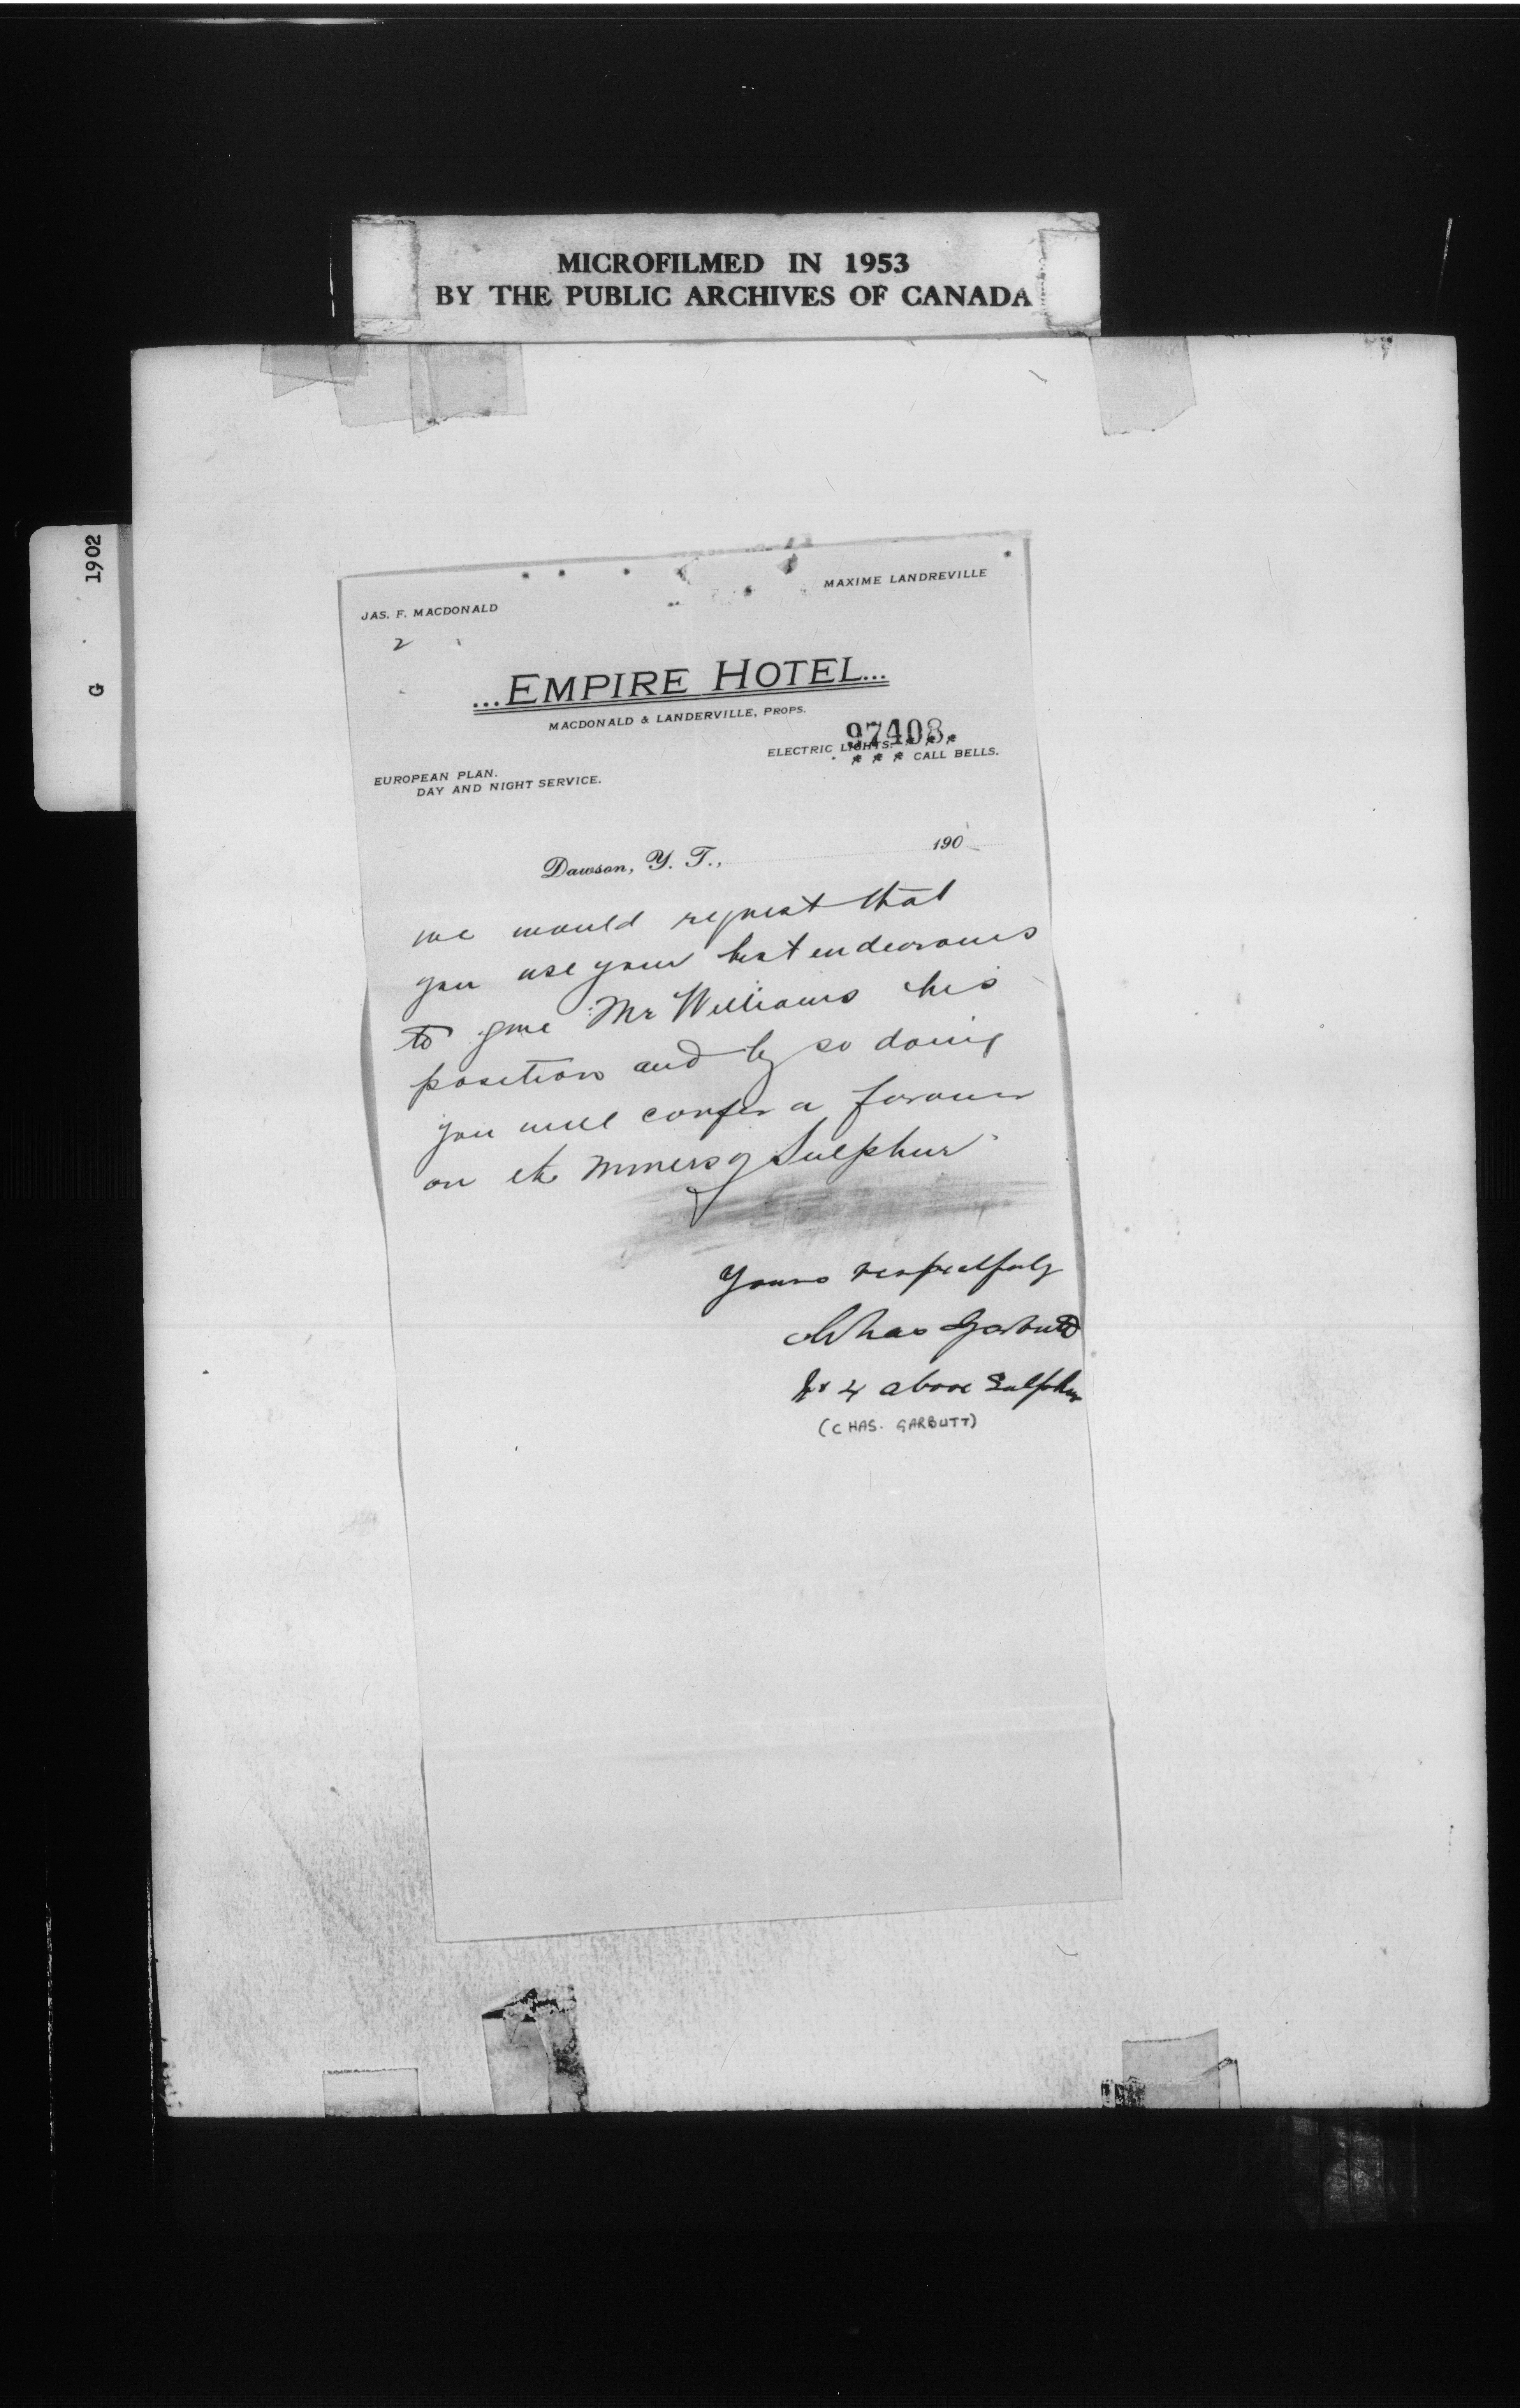 MICROFILMED IN 1953
BY THE PUBLIC ARCHIVES OF CANADA
G 1902
JAS. F. MACDONALD
MAXIME LANDREVILLE
2
...EMPIRE HOTEL...
MACDONALD & LANDERVILLE, PROPS.
97408
ELECTRIC LIGHTS. * * *
* * * CALL BELLS.
EUROPEAN PLAN.
DAY AND NIGHT SERVICE.
Dawson, Y. T., 190
we would request that
you use your best endeavours
to give Mr Williams his
position and by so doing
you will confer a favour
on the Miners of Sulphur
Yours respectfuly
Chas Garbutt
No 4 above Sulphur
(CHAS. GARBUTT)